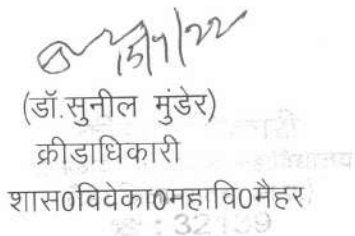 15/7/22
(डॉ.सुनील मुंडेर)
क्रीडाधिकारी
शास0विवेका0महावि0मैहर